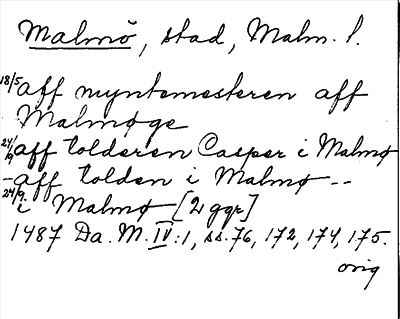 Malmö, stad, Malm. l.
18/5 aff myntemesteren aff
Malmøge
24/9 aff tolderen Casper i Malmø
- aff tolden i Malmø --
24/9. i Malmø [2 ggr]
1487 Da. M. IV:1, ss. 76, 172, 174, 175.
orig